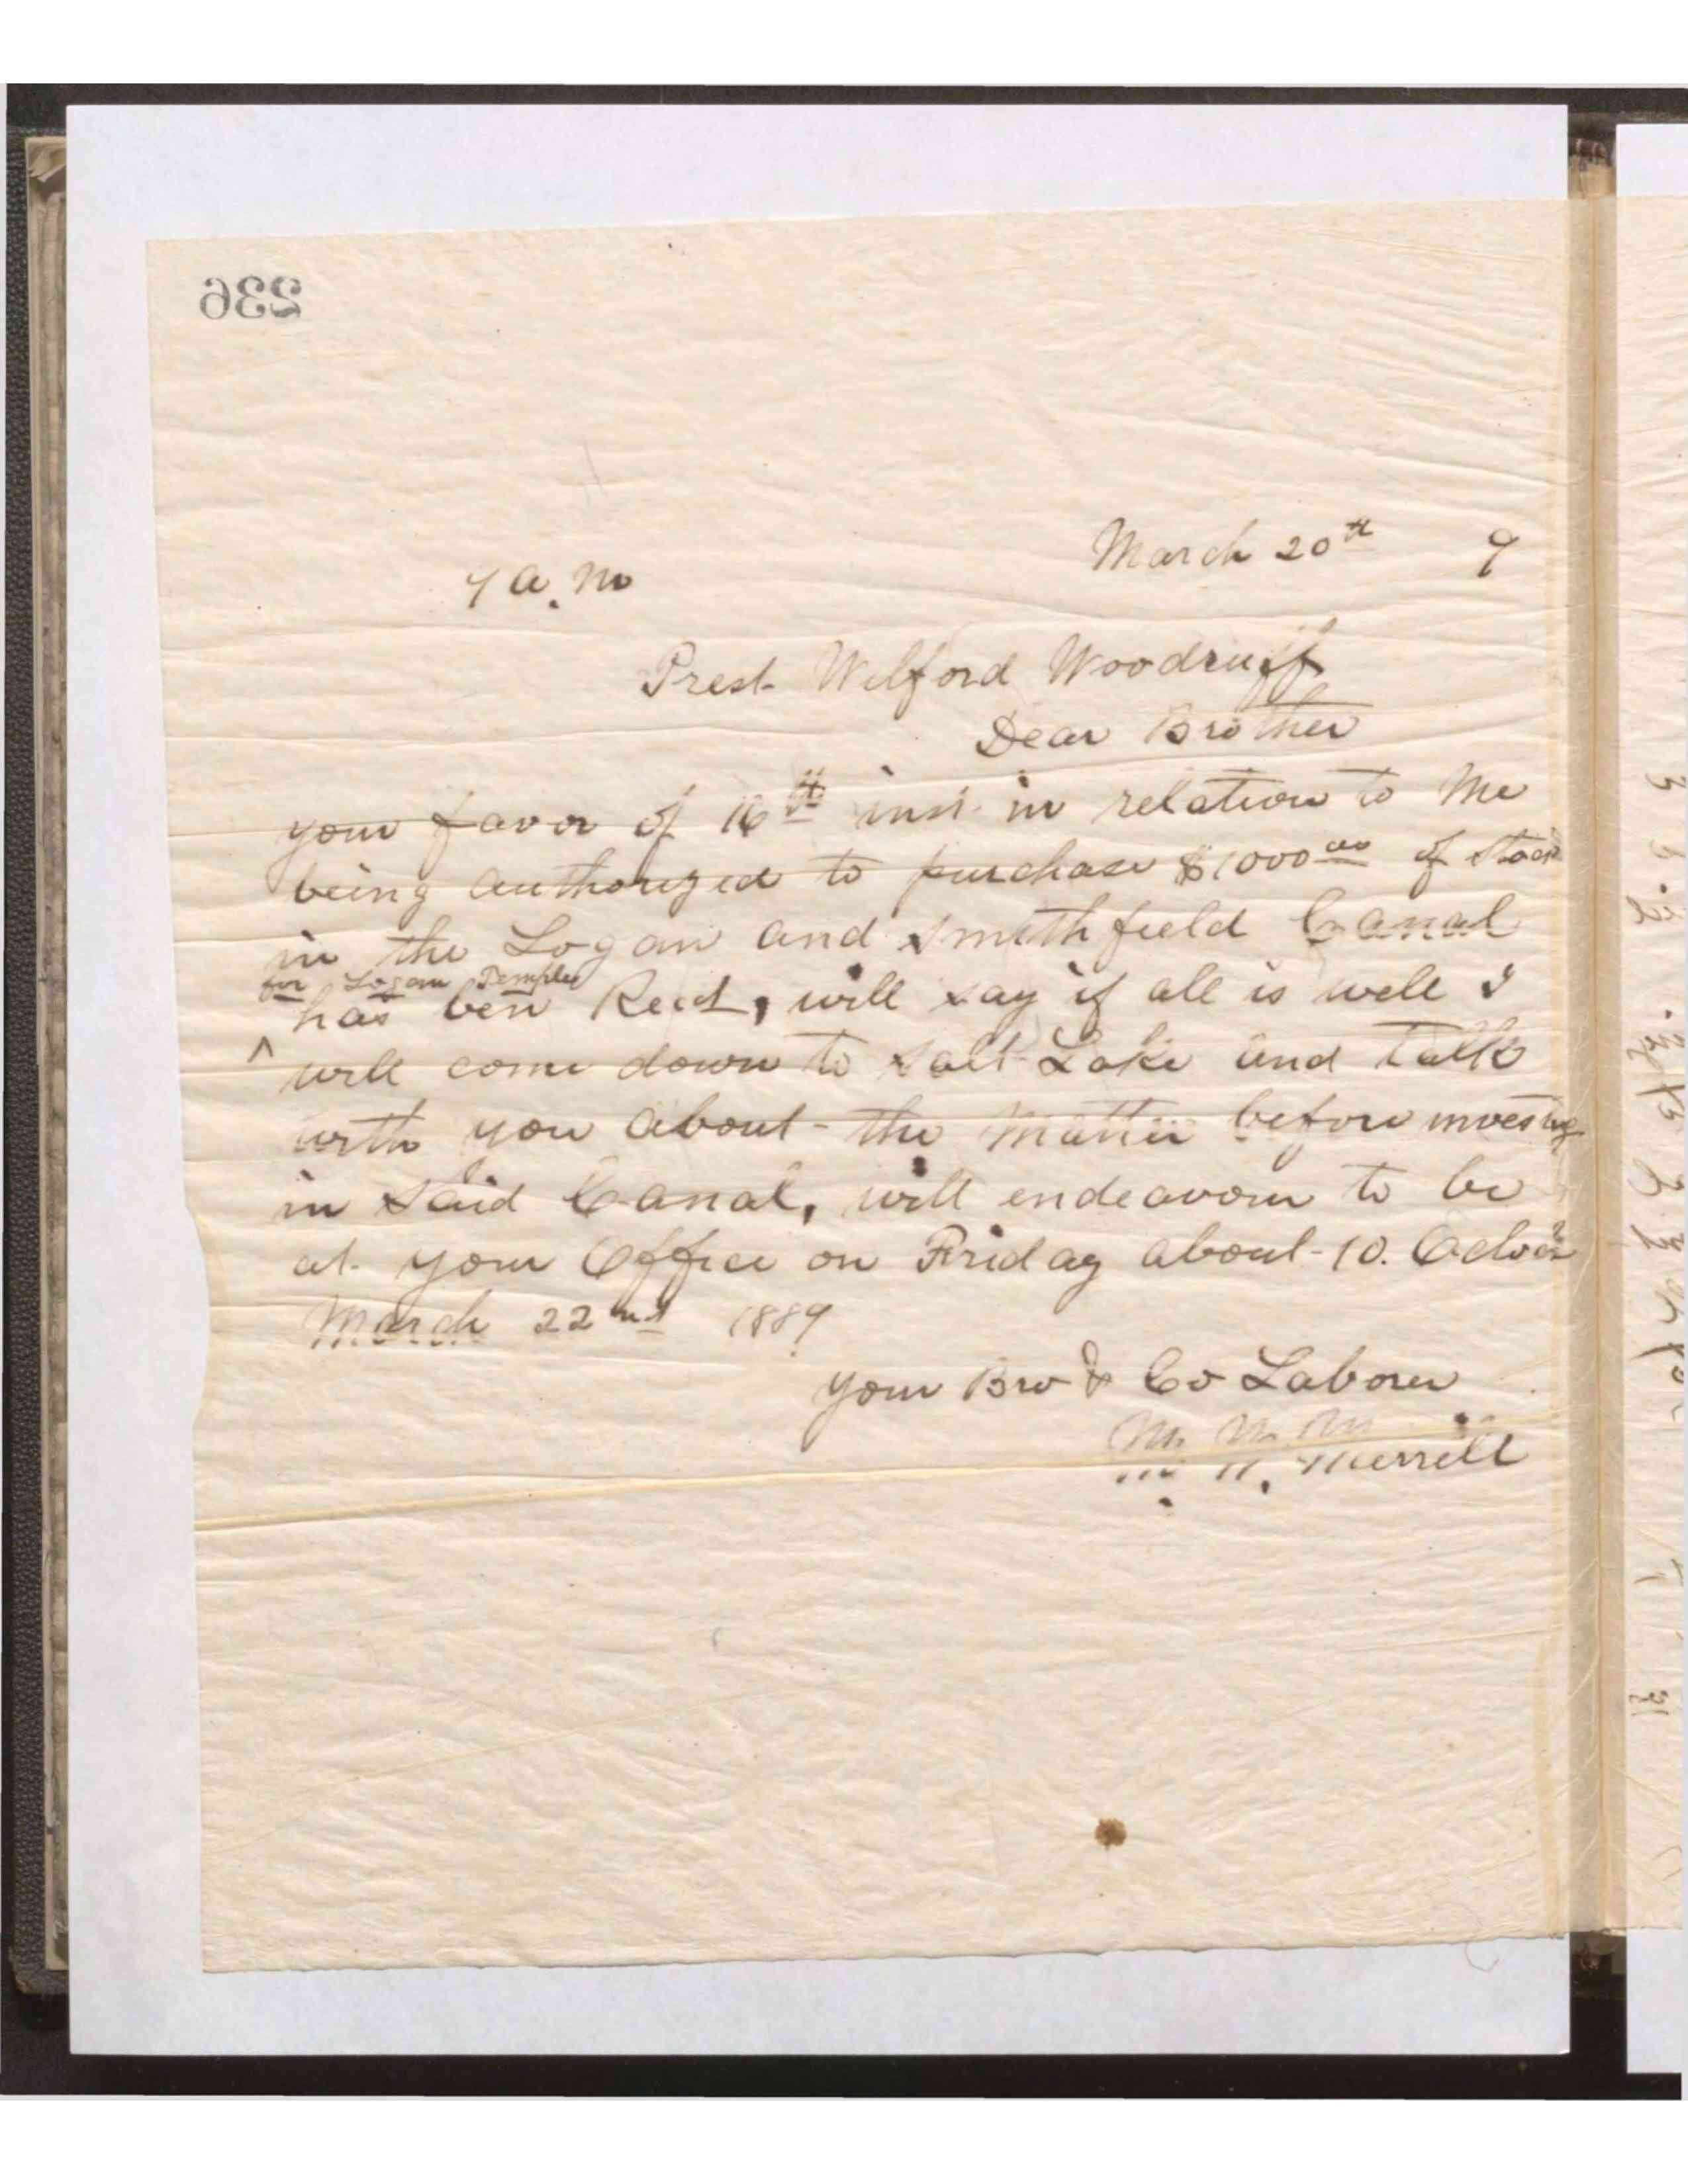 236
March 20th 9
7 a.m
Prest Wilford Woodruff
Dear Brother
your favor of 16th inst. in relation to Me
being authorized to purchase $1000.00 of Stock
in the Logan and Smithfield Canal
for Logan Temple
^ has ben Recd, will say if all is well I
will come down to Salt Lake and talk
with you about the Matter before investing
in Said Canal, will endeavour to be
at your Office on Friday about 10. Oclock
March 22nd 1889
your Bro & Co Laborer
M. W. Merrill